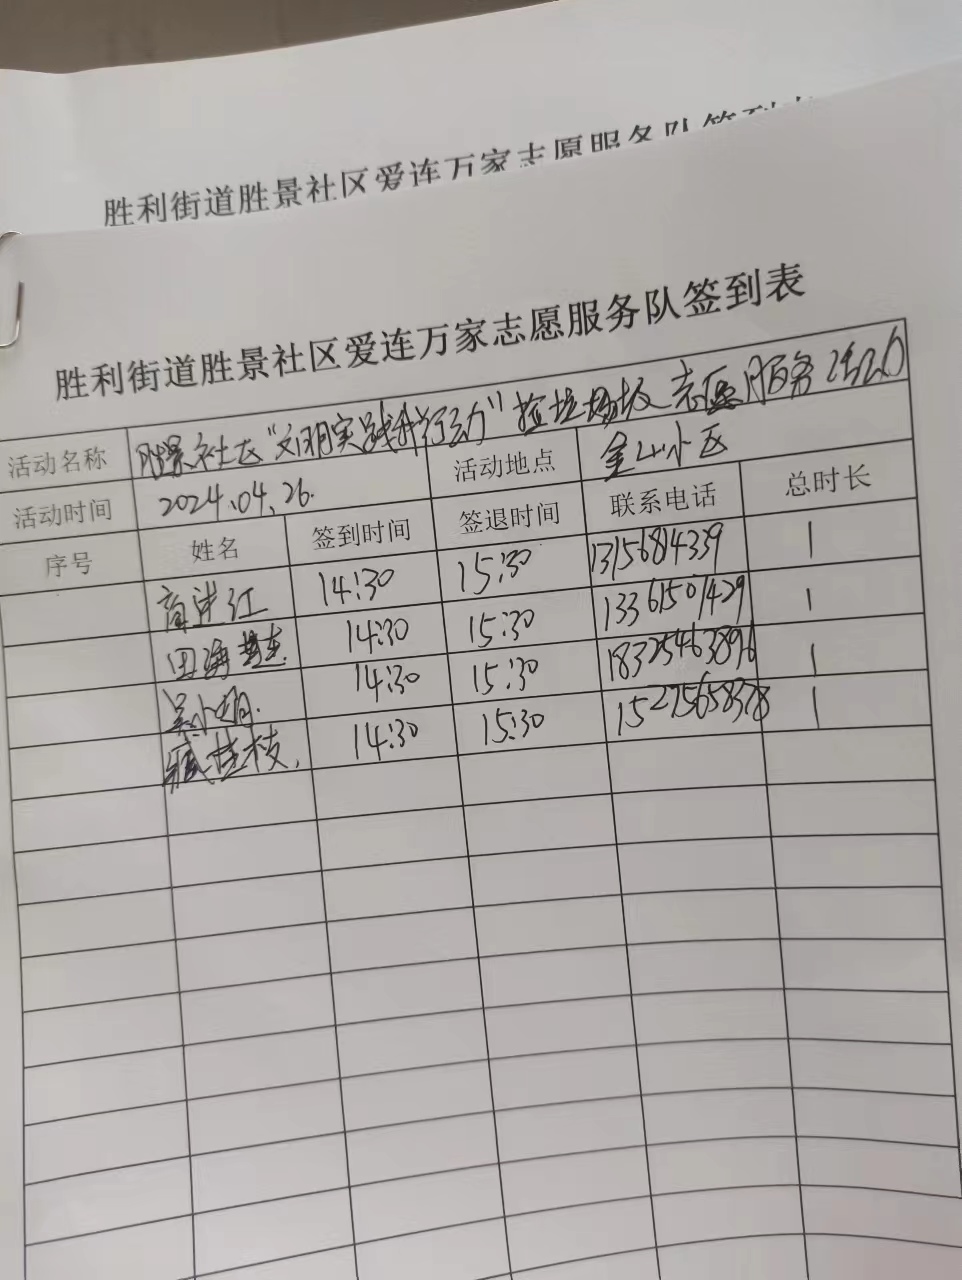 胜利街道胜景社区爱连万家志愿服务队签到表
胜利街道胜景社区爱连万家志愿服务队签到表
活动名称 胜景社区"文明实践我行动"捡垃圾 志愿服务活动
活动时间 2024.04.26. 活动地点 金山小区
序号 姓名 签到时间 签退时间 联系电话 总时长
14:30 15:30 13156814339 1
田海 14:30 15:30 13361501429 1
吴小明. 14:30 15:30 18325463896 1
臧桂枝. 14:30 15:30 15275658378 1